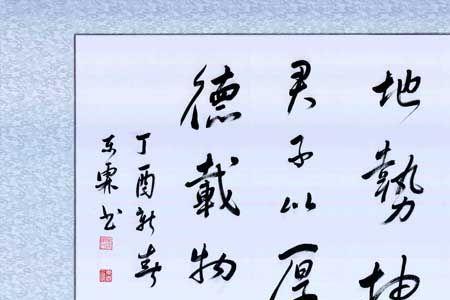 地勢坤
君子以厚
德載物
丁酉新春
東霖书